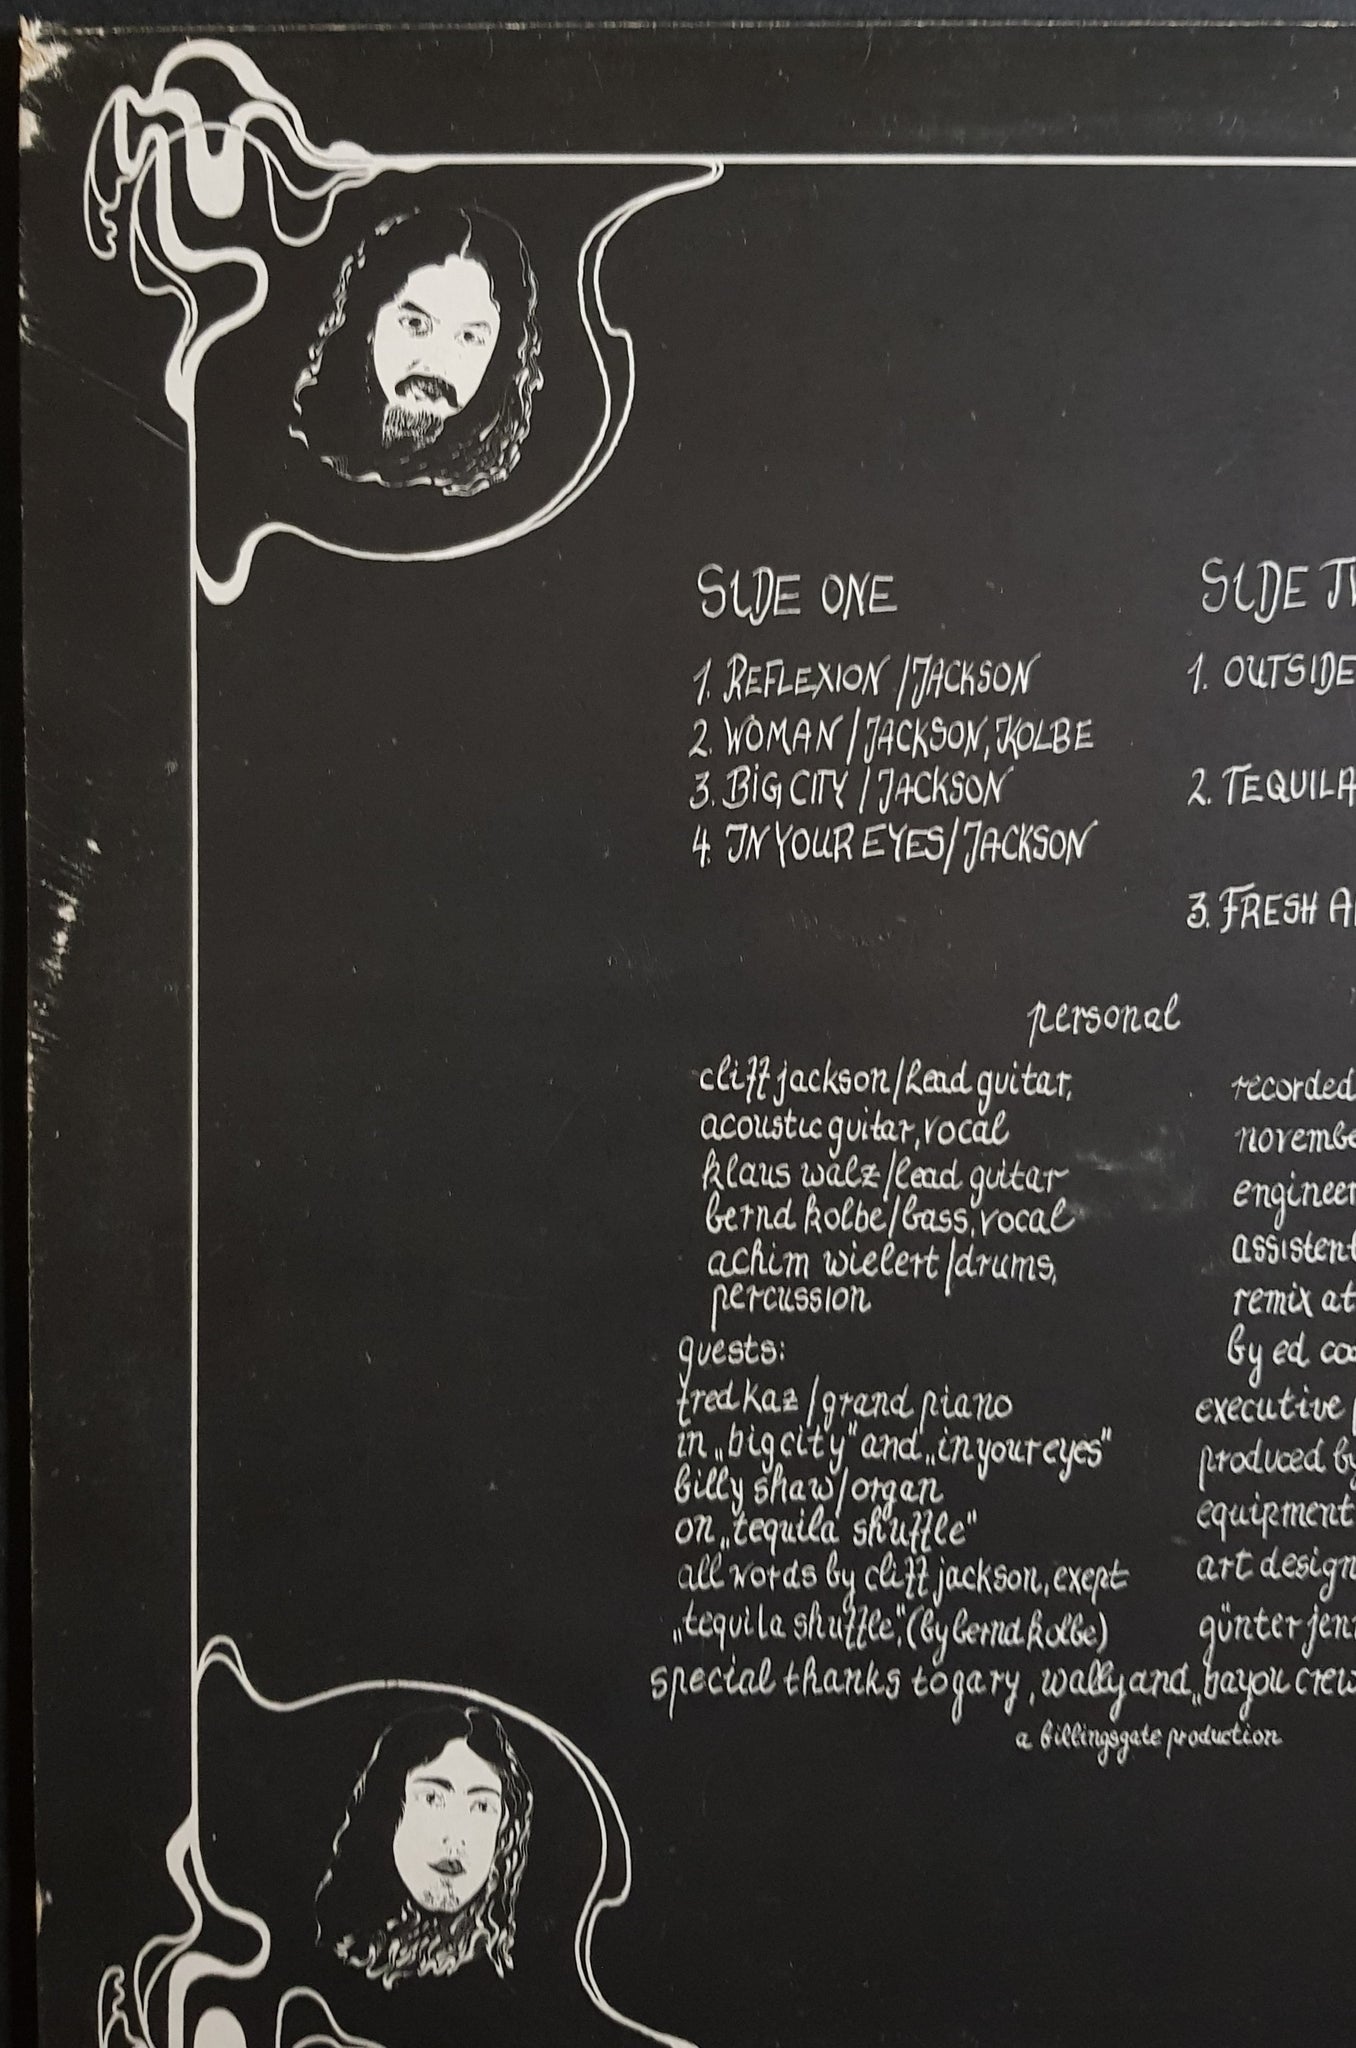 SIDE ONE
1. REFLEXION / JACKSON
2. WOMAN / JACKSON, KOLBE
3. BIG CITY / JACKSON
4. IN YOUR EYES / JACKSON
SIDE TW
1. OUTSIDE
2. TEQUILA
3. FRESH AI
personal
cliff jackson/lead guitar,
acoustic guitar, vocal
klaus walz/lead guitar
bernd kolbe/bass, vocal
achim wielert/drums,
percussion
guests:
fred kaz/grand piano
in „big city" and „in your eyes"
billy shaw/organ
on „tequila shuffle"
all words by cliff jackson, exept
„tequila shuffle", (by bernd kolbe)
recorded
novembe
engineer
assistent
remix at
by ed coo
executive p
produced by
equipment
art design
günter jen
special thanks to gary, wally and „bayou crew
a billingsgate production